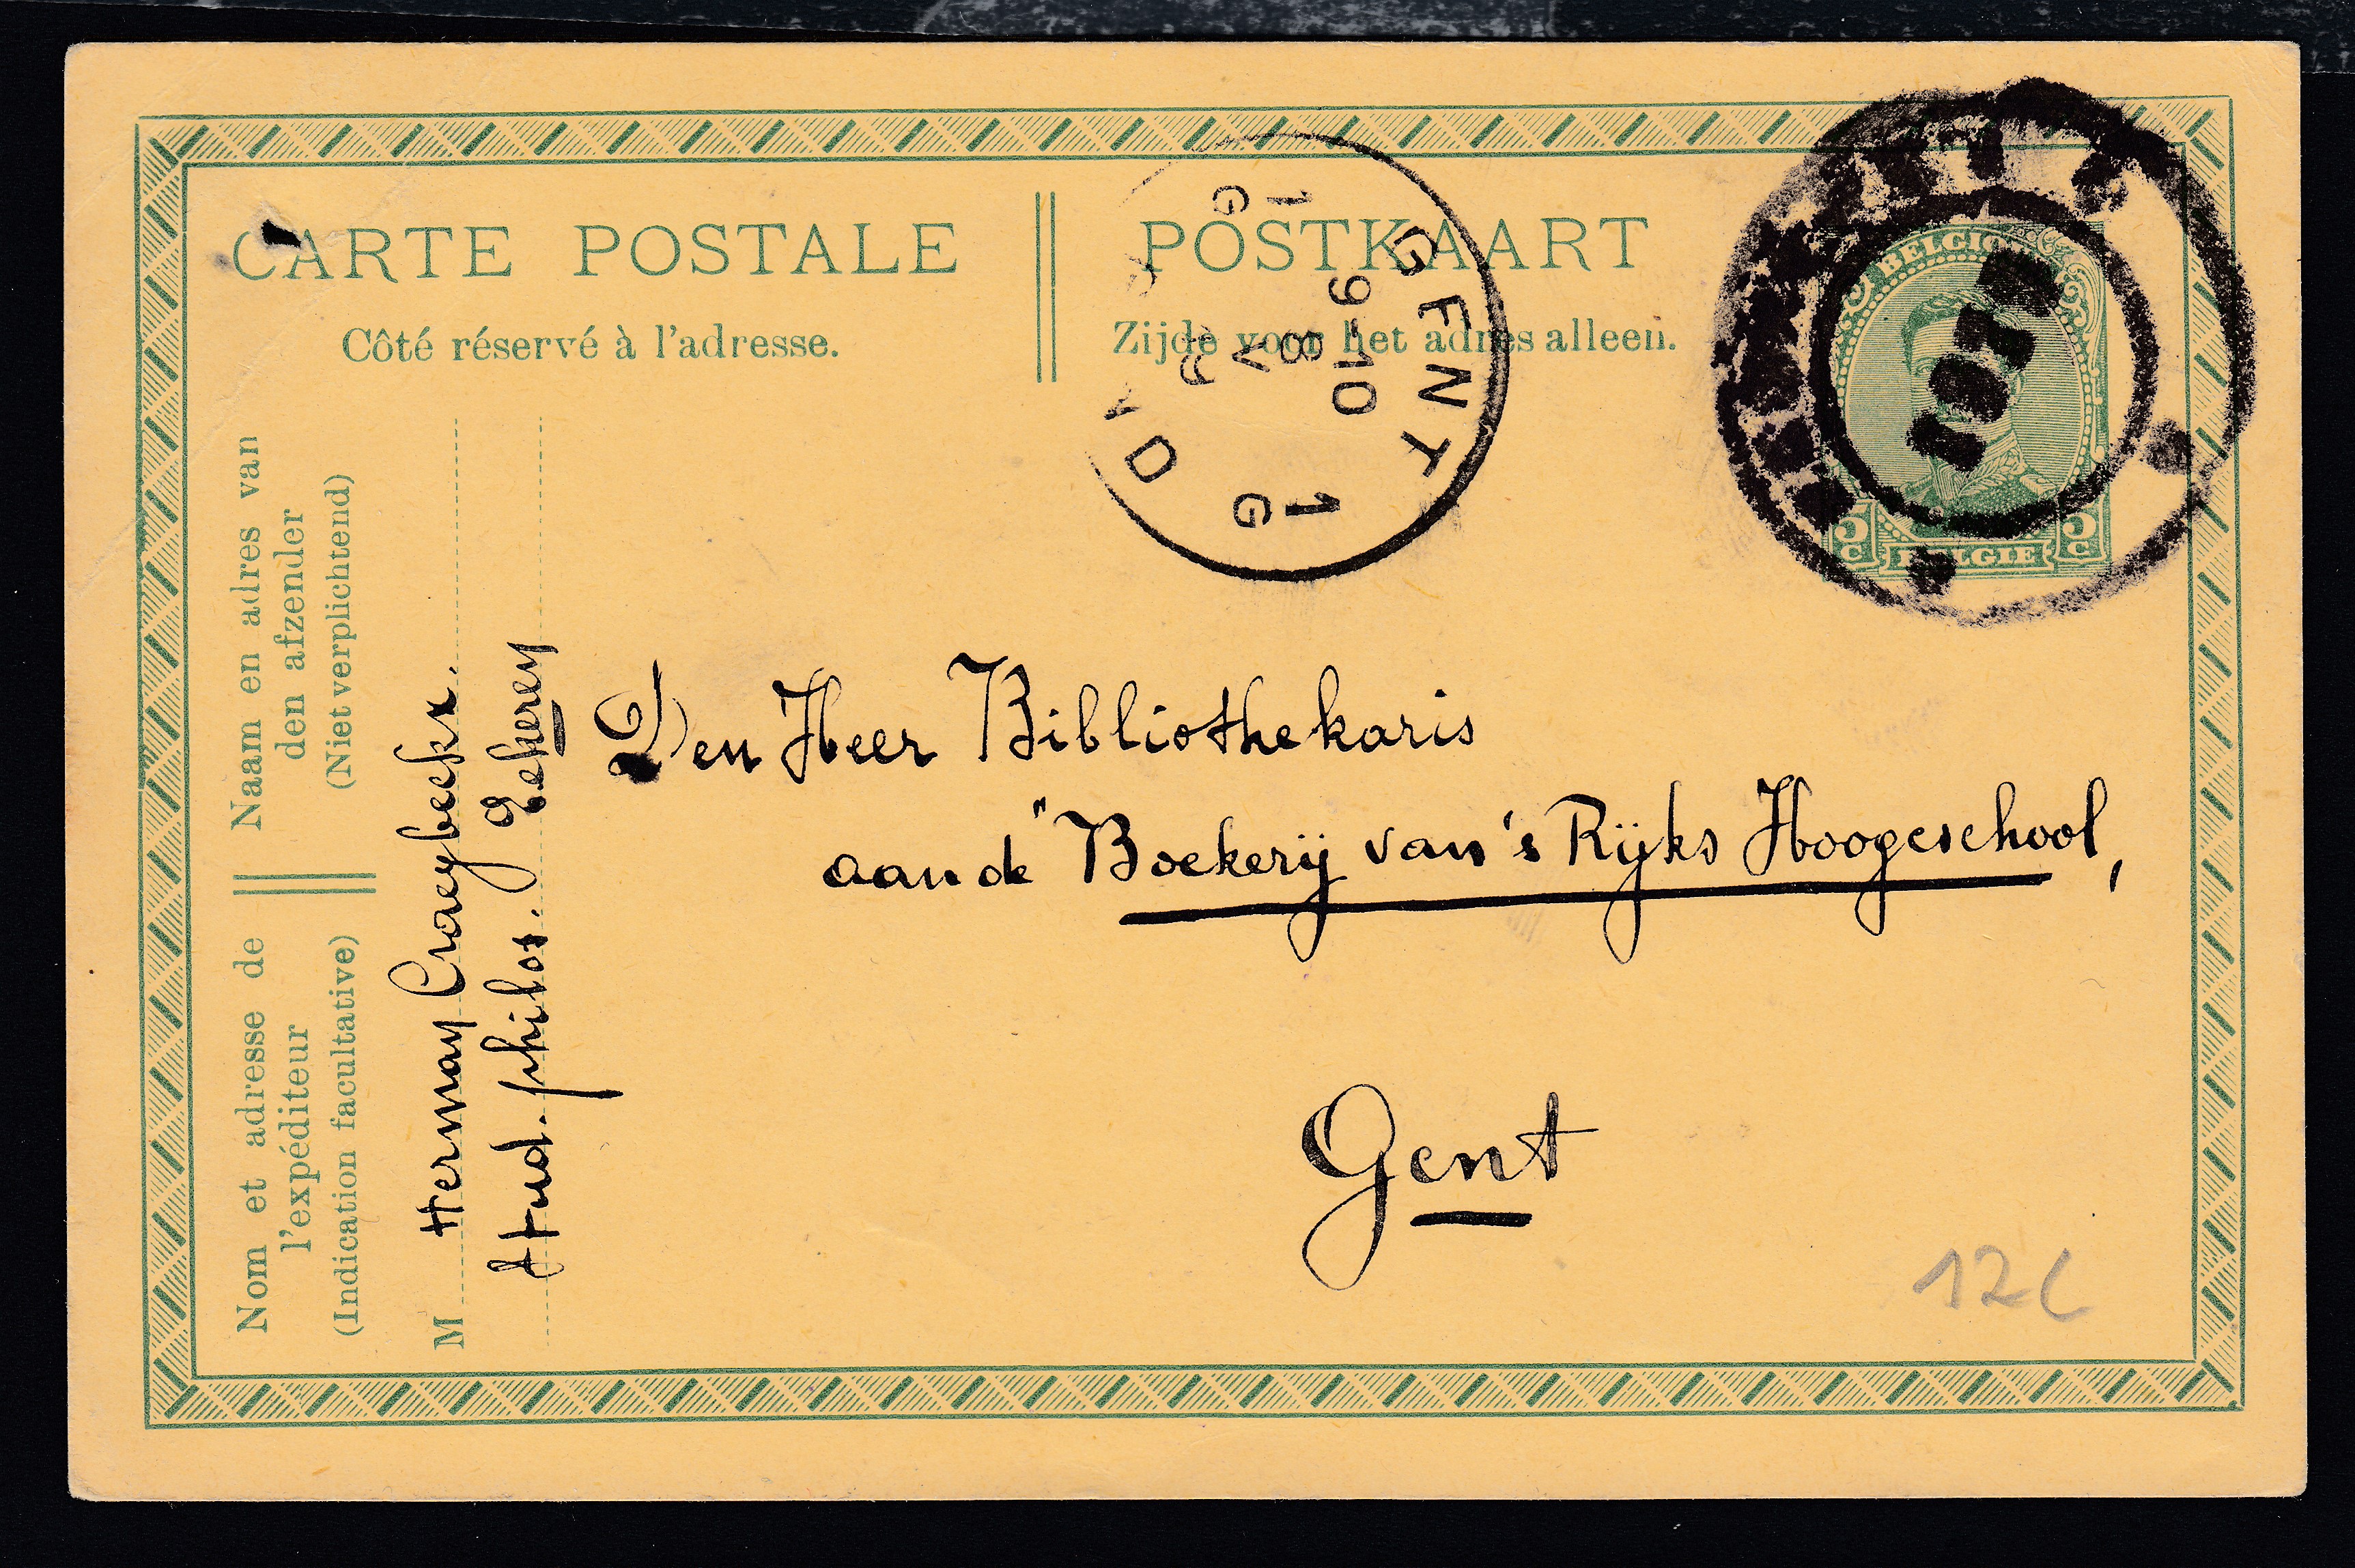 CARTE POSTALE
POSTKAART
Côté réservé à l'adresse.
Zijde voor het adres alleen.
GENT 1
1G
9-10
8
V
9
G
BELGIQUE
5 C
BELGIE
5 C
Naam en adres van
den afzender
(Niet verplichtend)
Nom et adresse de
l'expéditeur
(Indication facultative)
M Herman Craeybeckx.
Stud. philos. Ekeren
Den Heer Bibliothekaris
aan de "Boekerij van 's Rijks Hoogeschool,
Gent